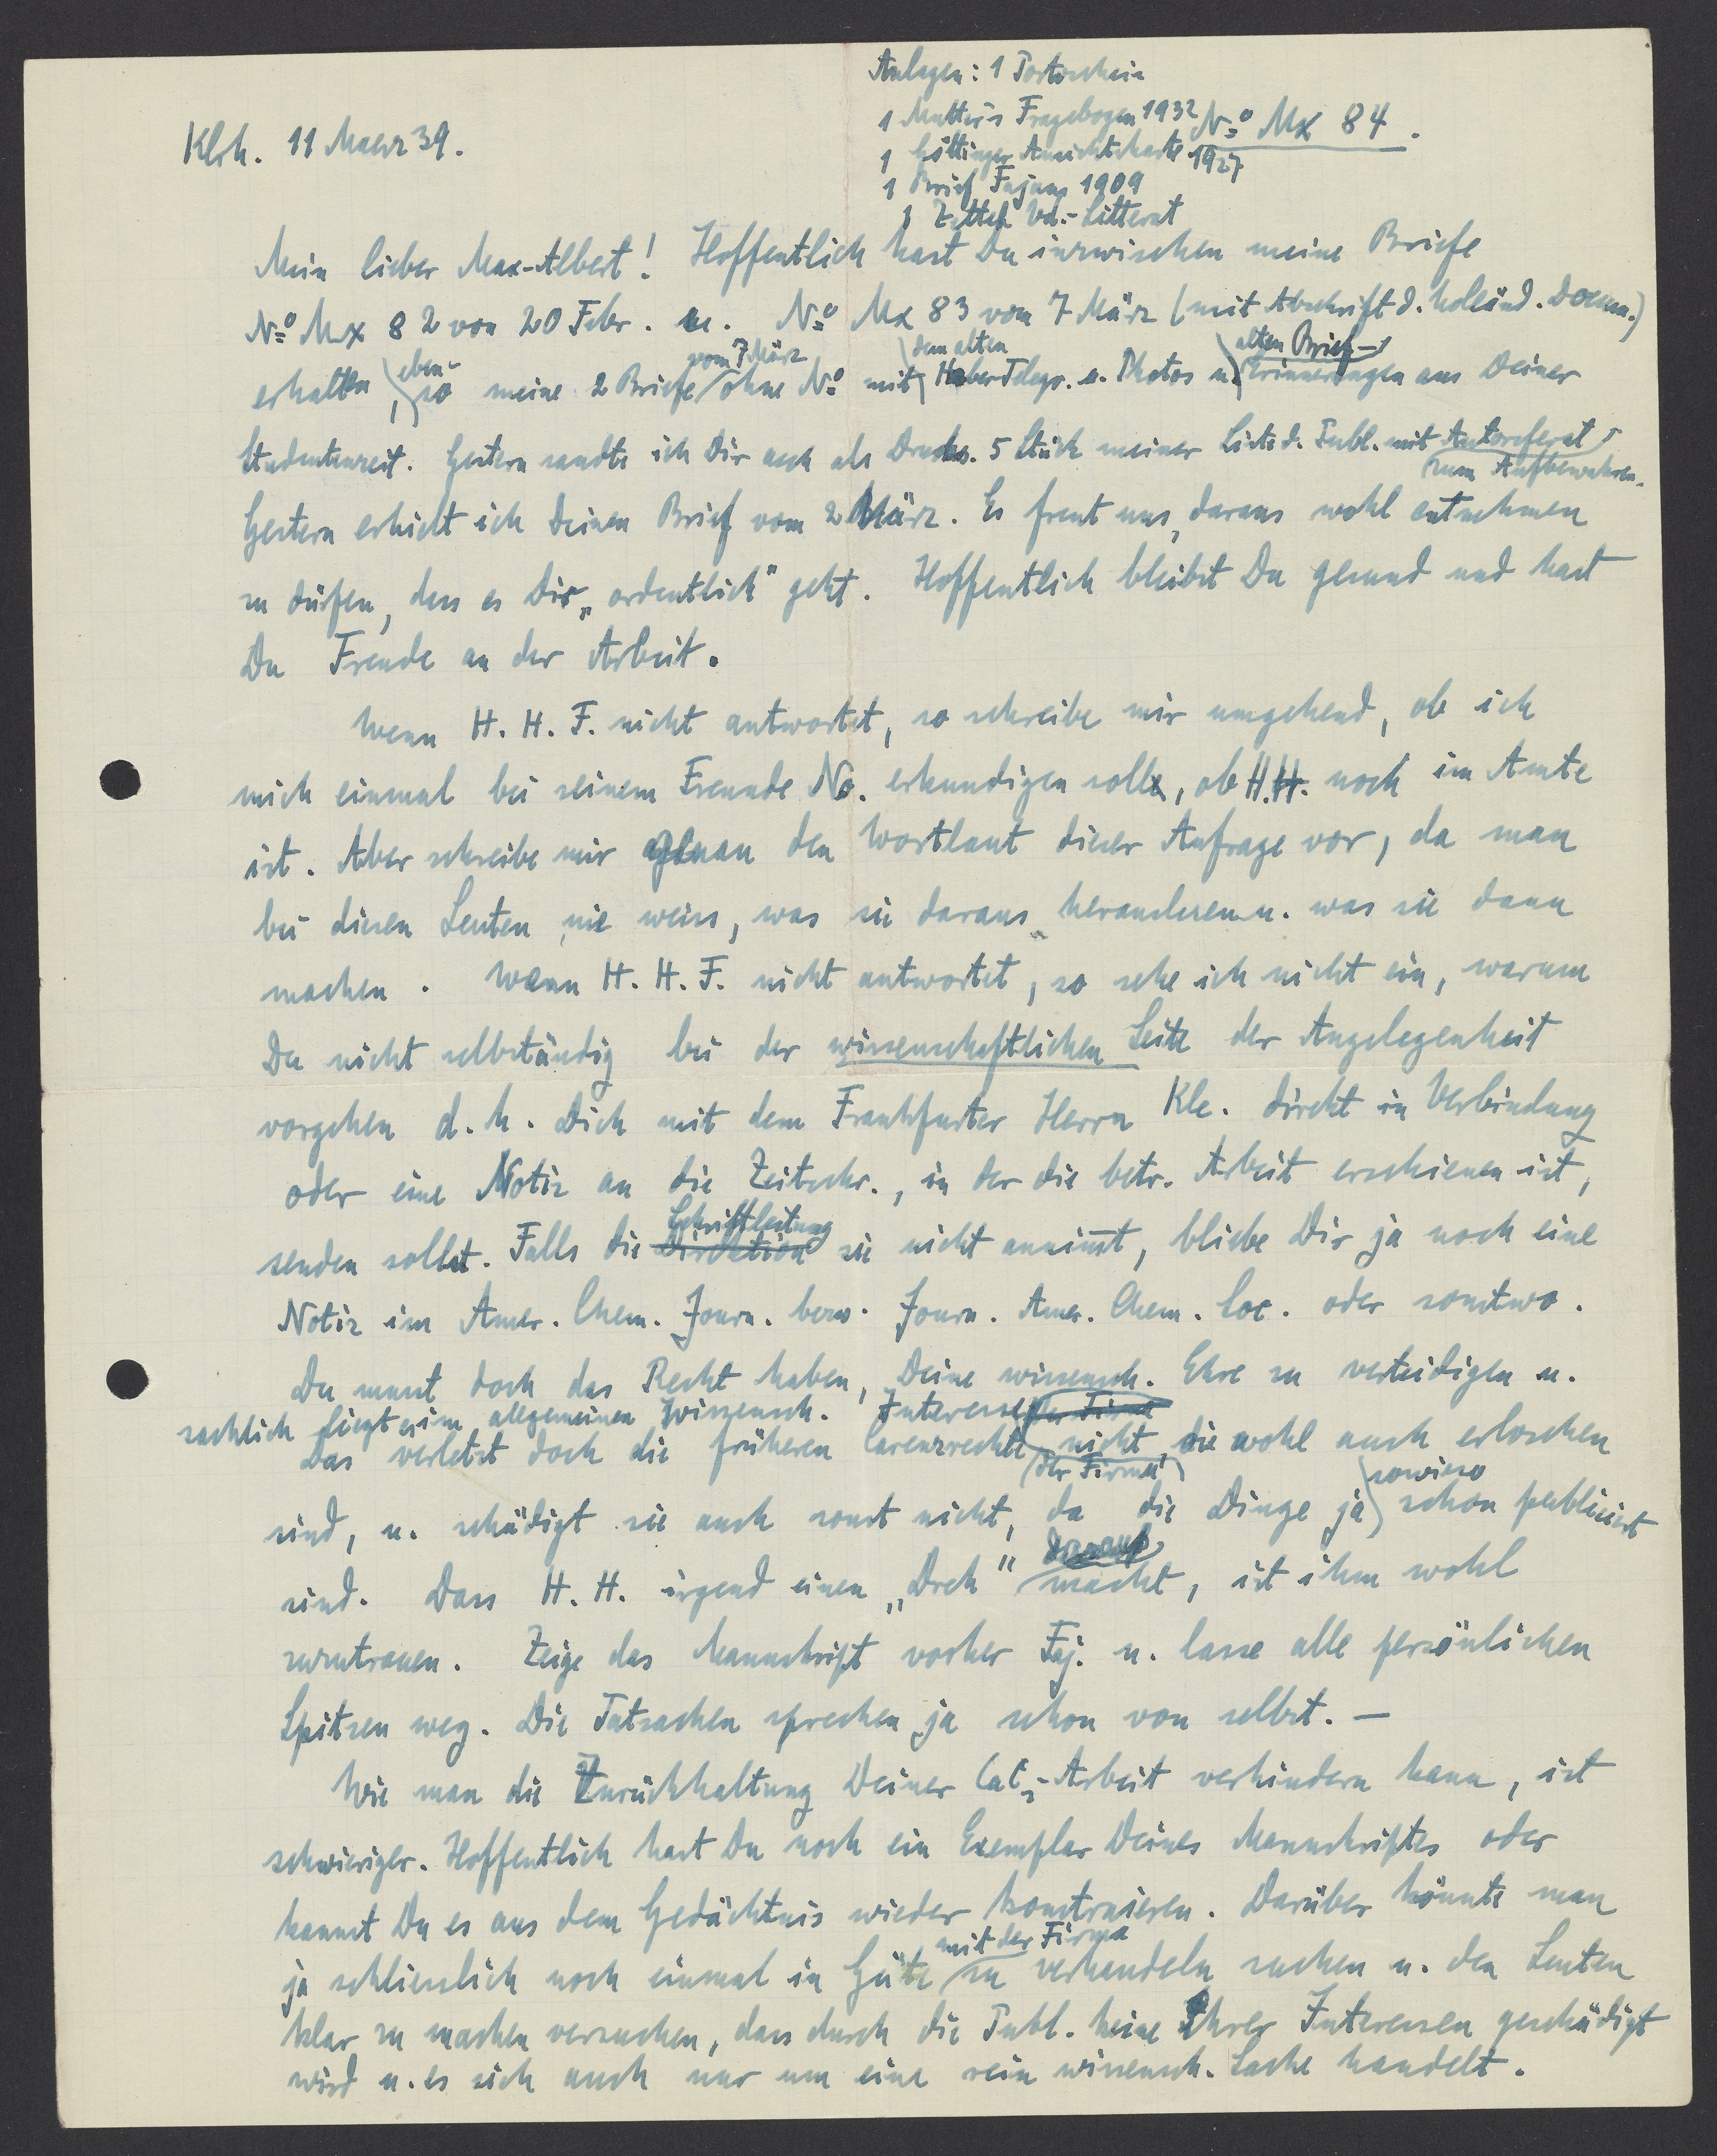 Anlagen: 1 Portoschein
1 Mutter's Fragebogen 1932
No Mx 84.
Klrh. 11 Maerz 39.
1 Göttinger Ansichtskarte 1927
1 Brief Fajans 1909
1 Zettel Vd.-Litterat
Mein lieber Max-Albert! Hoffentlich hast Du inzwischen meine Briefe
No Mx 82 von 20 Febr. u. No Mx 83 vom 7 März (mit Abschrift d. holländ. Docum.)
erhalten, ebenso meine 2 Briefe vom 7 März ohne No mit dem alten Haber Telegr. u. Photos u. alten Brief-Erinnerungen aus Deiner
Studentenzeit. Gestern sandte ich Dir auch als Drucks. 5 Stück meiner Liste d. Publ. mit Autoreferat
zum Aufbewahren.
Gestern erhielt ich Deinen Brief vom 2 März. Es freut uns, daraus wohl entnehmen
zu dürfen, dass es Dir „ordentlich" geht. Hoffentlich bleibst Du gesund und hast
Du Freude an der Arbeit.
Wenn H. H. F. nicht antwortet, so schreibe mir umgehend, ob ich
mich einmal bei seinem Freunde No. erkundigen soll, ob H.H. noch im Amte
ist. Aber schreibe mir genau den Wortlaut dieser Anfrage vor, da man
bei diesen Leuten nie weiss, was sie daraus herauslesen u. was sie dann
machen. Wenn H. H. F. nicht antwortet, so sehe ich nicht ein, warum
Du nicht selbständig bei der wissenschaftlichen Seite der Angelegenheit
vorgehen d. h. Dich mit dem Frankfurter Herrn Kle. direkt in Verbindung
oder eine Notiz an die Zeitschr., in der die betr. Arbeit erschienen ist,
senden sollst. Falls die Direktion Schriftleitung sie nicht annimmt, bliebe Dir ja noch eine
Notiz im Amer. Chem. Journ. bezw. Journ. Amer. Chem. Soc. oder sonstwo.
Du musst doch das Recht haben, Deine wissensch. Ehre zu verteidigen u.
sachlich liegt es im allgemeinen Wissensch. Interesse der Firma
Das verletzt doch die früheren Carenzrechte der Firma nicht, die wohl auch erloschen
sind, u. schädigt sie auch sonst nicht, da die Dinge ja sowieso schon publiciert
sind. Dass H. H. irgend einen „Dreh" daraus macht, ist ihm wohl
zuzutrauen. Zeige das Manuskript vorher Faj. u. lasse alle persönlichen
Spitzen weg. Die Tatsachen sprechen ja schon von selbst. —
Wie man die Zurückhaltung Deiner CaC2-Arbeit verhindern kann, ist
schwieriger. Hoffentlich hast Du noch ein Exemplar Deines Manuskriptes oder
kannst Du es aus dem Gedächtnis wieder konstruieren. Darüber könnte man
ja schliesslich noch einmal in Güte mit der Firma zu verhandeln suchen u. den Leuten
klar zu machen versuchen, dass durch die Publ. keine Ihrer Interessen geschädigt
wird u. es sich auch nur um eine rein wissensch. Sache handelt.